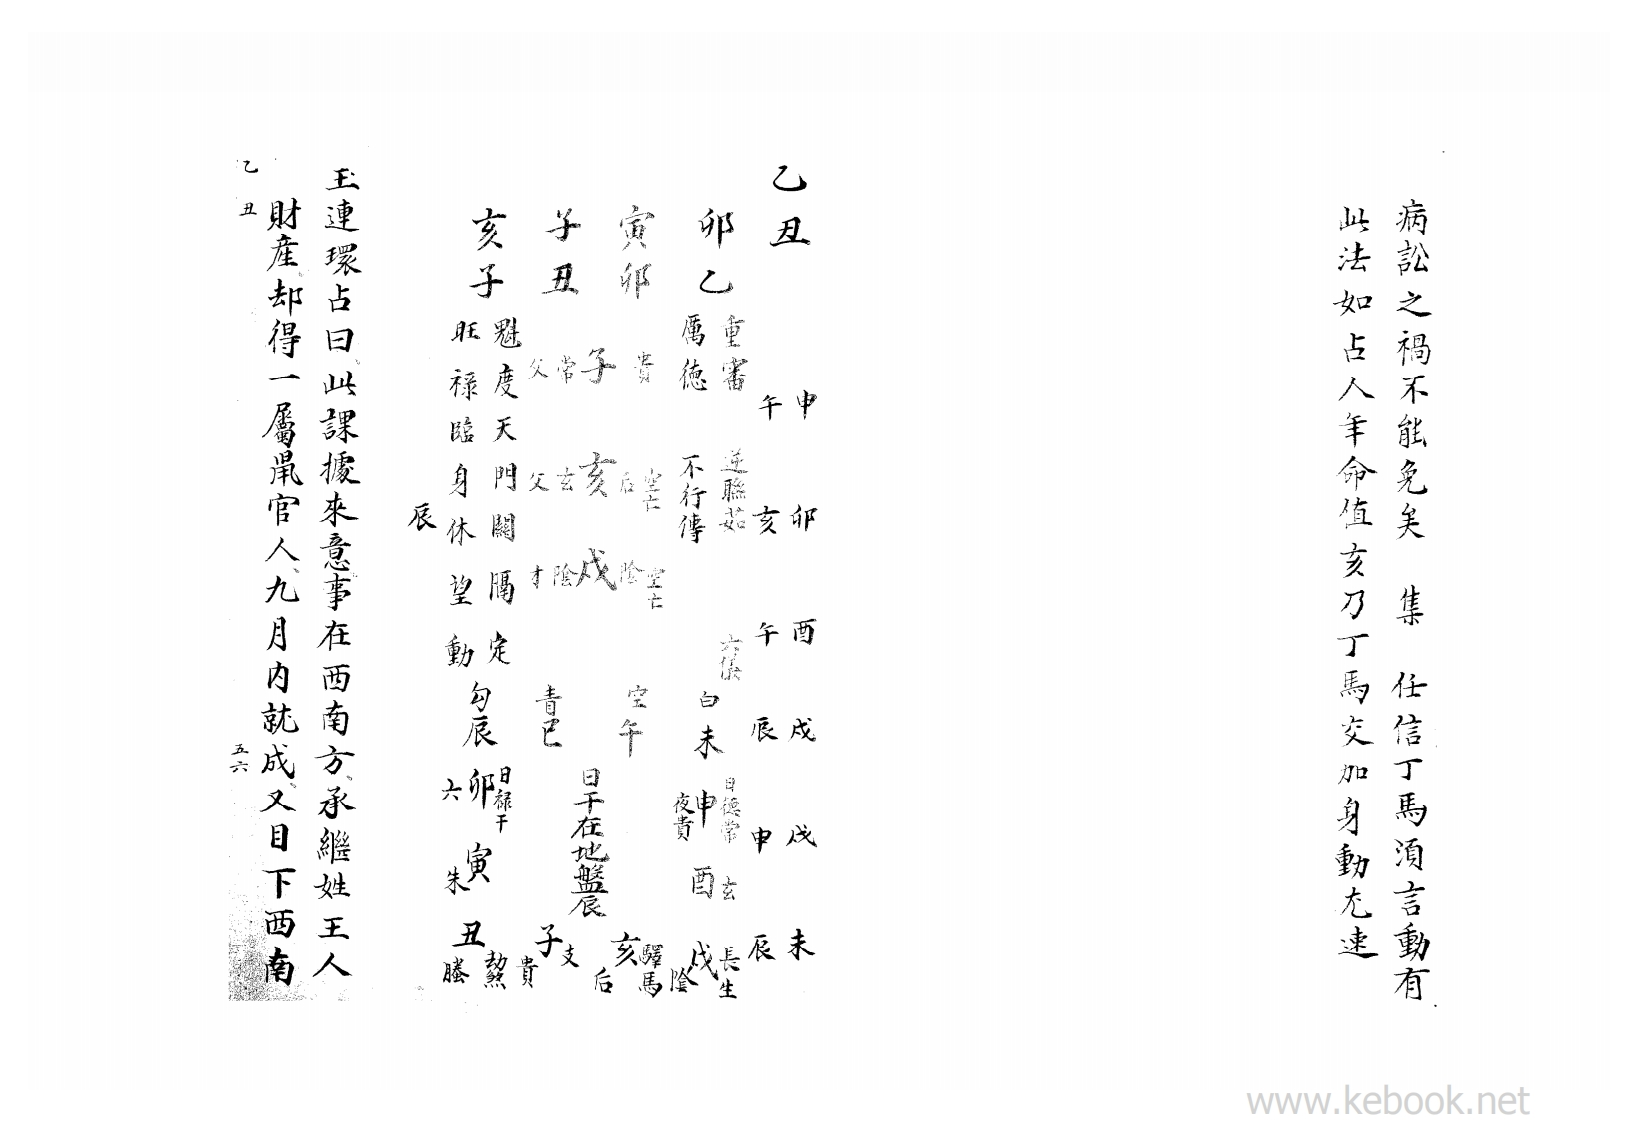 病訟之禍不能免矣　集　任信丁馬須言動有
此法如占人年命值亥乃丁馬交加身動尤速
乙丑
申　卯　酉　戌　戌　未
午　亥　午　辰　申　辰
重審　逆聯茹　六儀
厲德　不行傳
卯乙
寅卯
子丑
亥子
貴　子　常　父
空亡　后　亥　玄　父
空亡　陰　戌　陰　才
魁度天門關隔定
旺祿臨身休望動
辰
白未　空午　青巳　勾辰
日德常　申　夜貴
日干在地盤辰
日祿干　卯　六
玄　酉
寅　朱
長生　戌　陰
驛馬　亥　后
支　子　貴
煞　丑　螣
玉連環占曰、此課據來意事在西南方、承繼姓王人
財產、却得一屬鼠官人、九月內就成、又目下西南
乙丑
五六
www.kebook.net